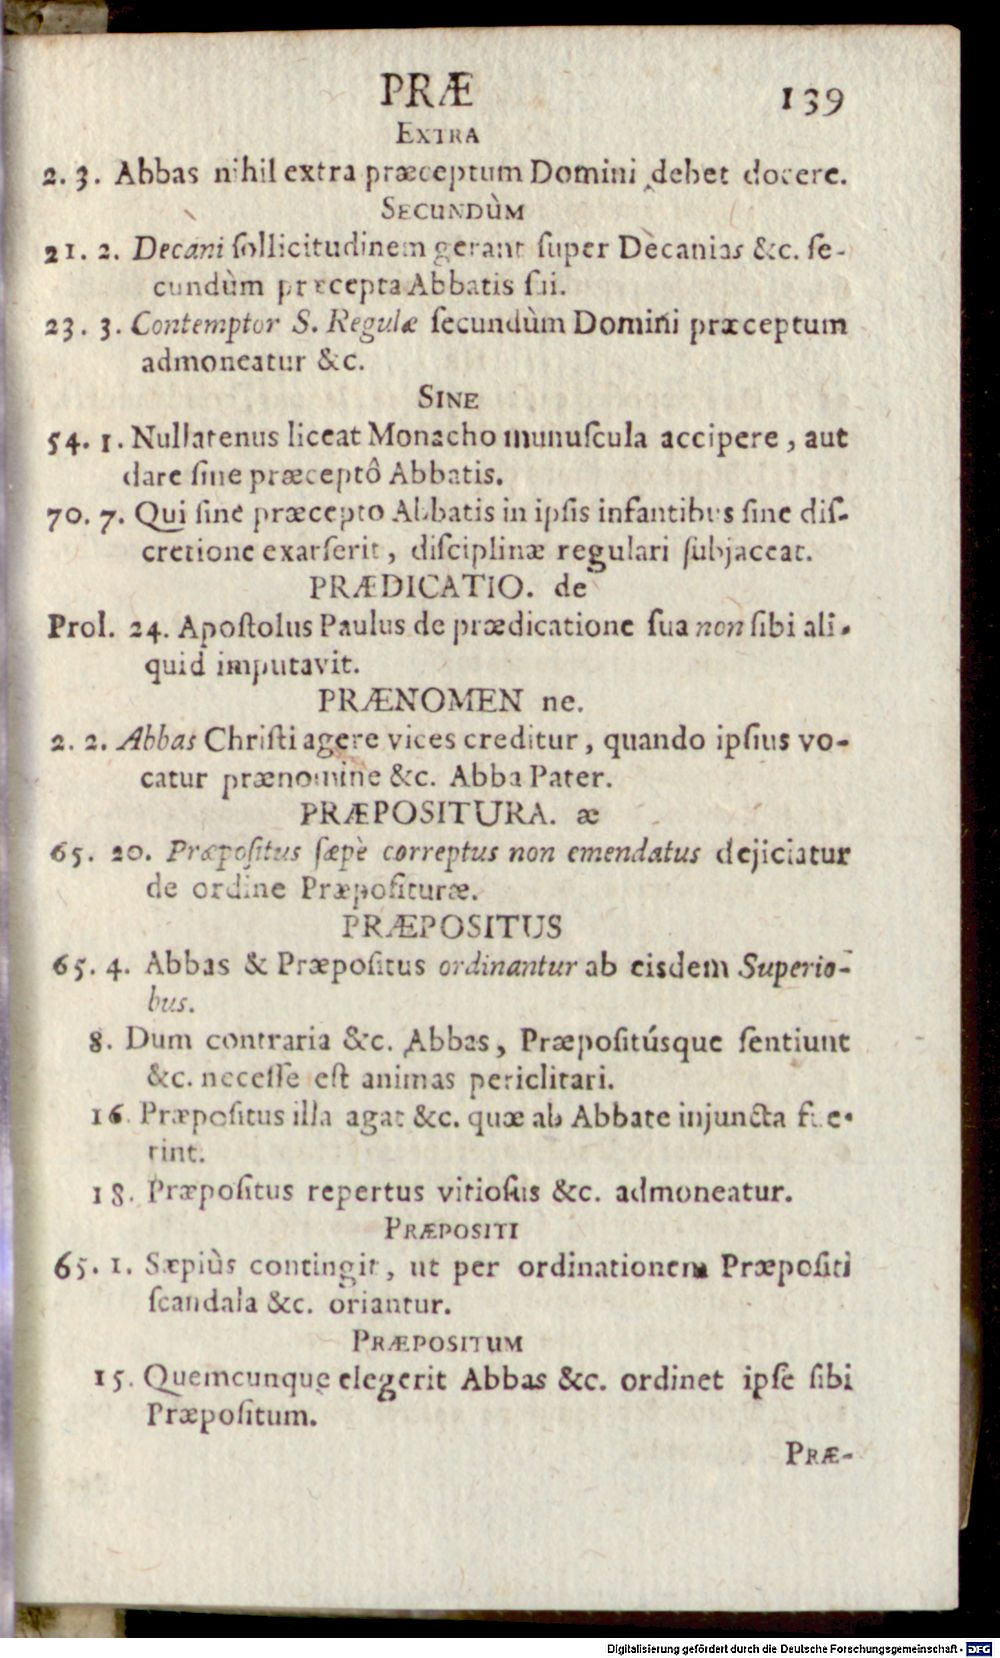 PRÆ 139
EXTRA
2. 3. Abbas nihil extra præceptum Domini debet docere.
SECUNDÙM
21. 2. Decani ſollicitudinem gerant ſuper Decanias &c. ſe-
cundùm præcepta Abbatis ſui.
23. 3. Contemptor S. Regulæ ſecundùm Domini præceptum
admoneatur &c.
SINE
54. 1. Nullatenus liceat Monacho munuſcula accipere, aut
dare ſine præceptô Abbatis.
70. 7. Qui ſine præcepto Abbatis in ipſis infantibus ſine diſ-
cretione exarſerit, diſciplinæ regulari ſubjaceat.
PRÆDICATIO. de
Prol. 24. Apoſtolus Paulus de prædicatione ſua non ſibi ali-
quid imputavit.
PRÆNOMEN ne.
2. 2. Abbas Chriſti agere vices creditur, quando ipſius vo-
catur prænomine &c. Abba Pater.
PRÆPOSITURA. æ
65. 20. Præpoſitus ſæpè correptus non emendatus dejiciatur
de ordine Præpoſituræ.
PRÆPOSITUS
65. 4. Abbas & Præpoſitus ordinantur ab eisdem Superio-
bus.
8. Dum contraria &c. Abbas, Præpoſitúsque ſentiunt
&c. neceſſe eſt animas periclitari.
16. Præpoſitus illa agat &c. quæ ab Abbate injuncta fue-
rint.
18. Præpoſitus repertus vitioſus &c. admoneatur.
PRÆPOSITI
65. 1. Sæpiùs contingit, ut per ordinationem Præpoſiti
ſcandala &c. oriantur.
PRÆPOSITUM
15. Quemcunque elegerit Abbas &c. ordinet ipſe ſibi
Præpoſitum.
PRÆ-
Digitalisierung gefördert durch die Deutsche Forschungsgemeinschaft - DFG